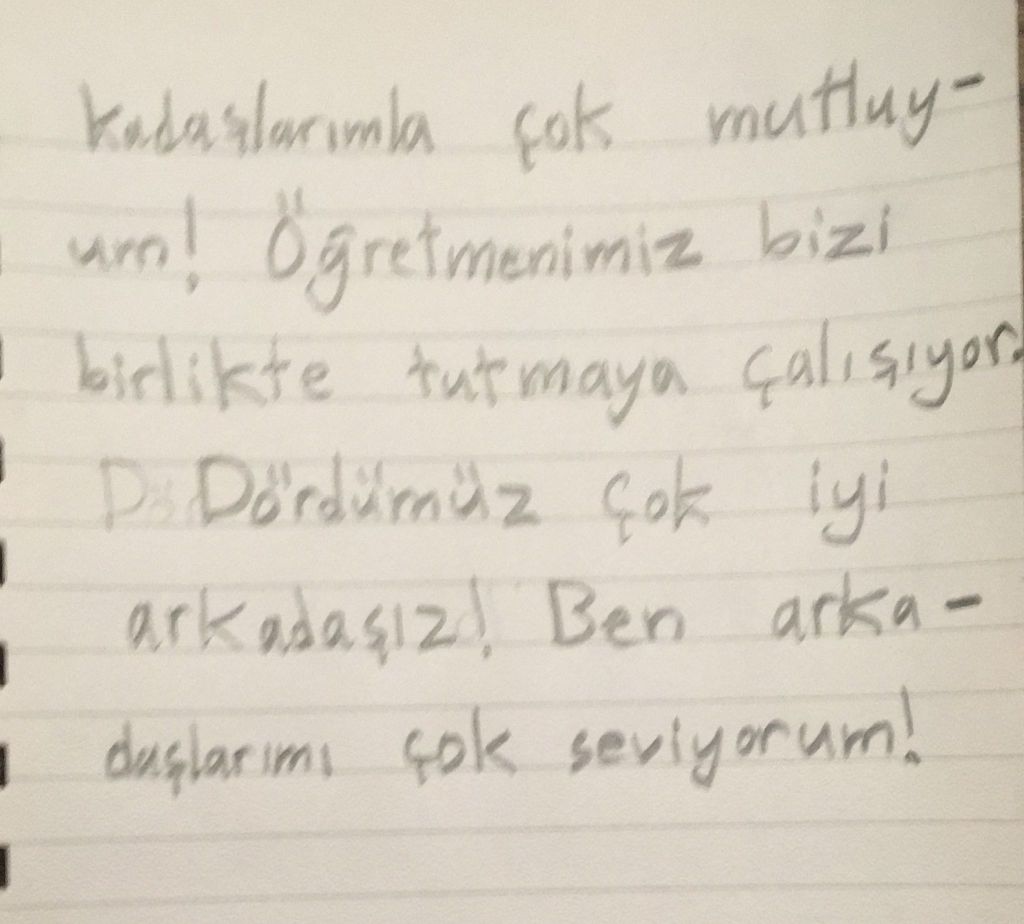 kadaşlarımla çok mutluy-
um! Öğretmenimiz bizi
birlikte tutmaya çalışıyor.
Dördümüz çok iyi
arkadaşız! Ben arka-
daşlarımı çok seviyorum!